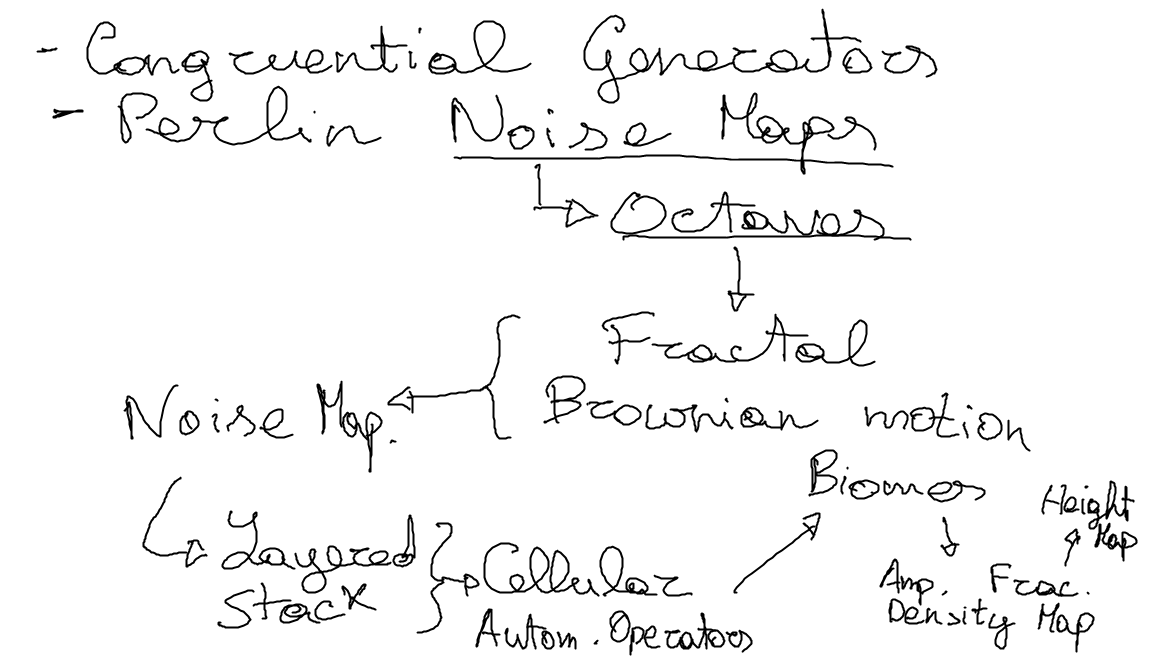 - Congruential Generators
- Perlin Noise Maps
Octaves
Fractal
Brownian motion
Noise Map.
Layered
Stack
Cellular
Autom. Operators
Biomes
Amp. Frac.
Density Map
Height
Map